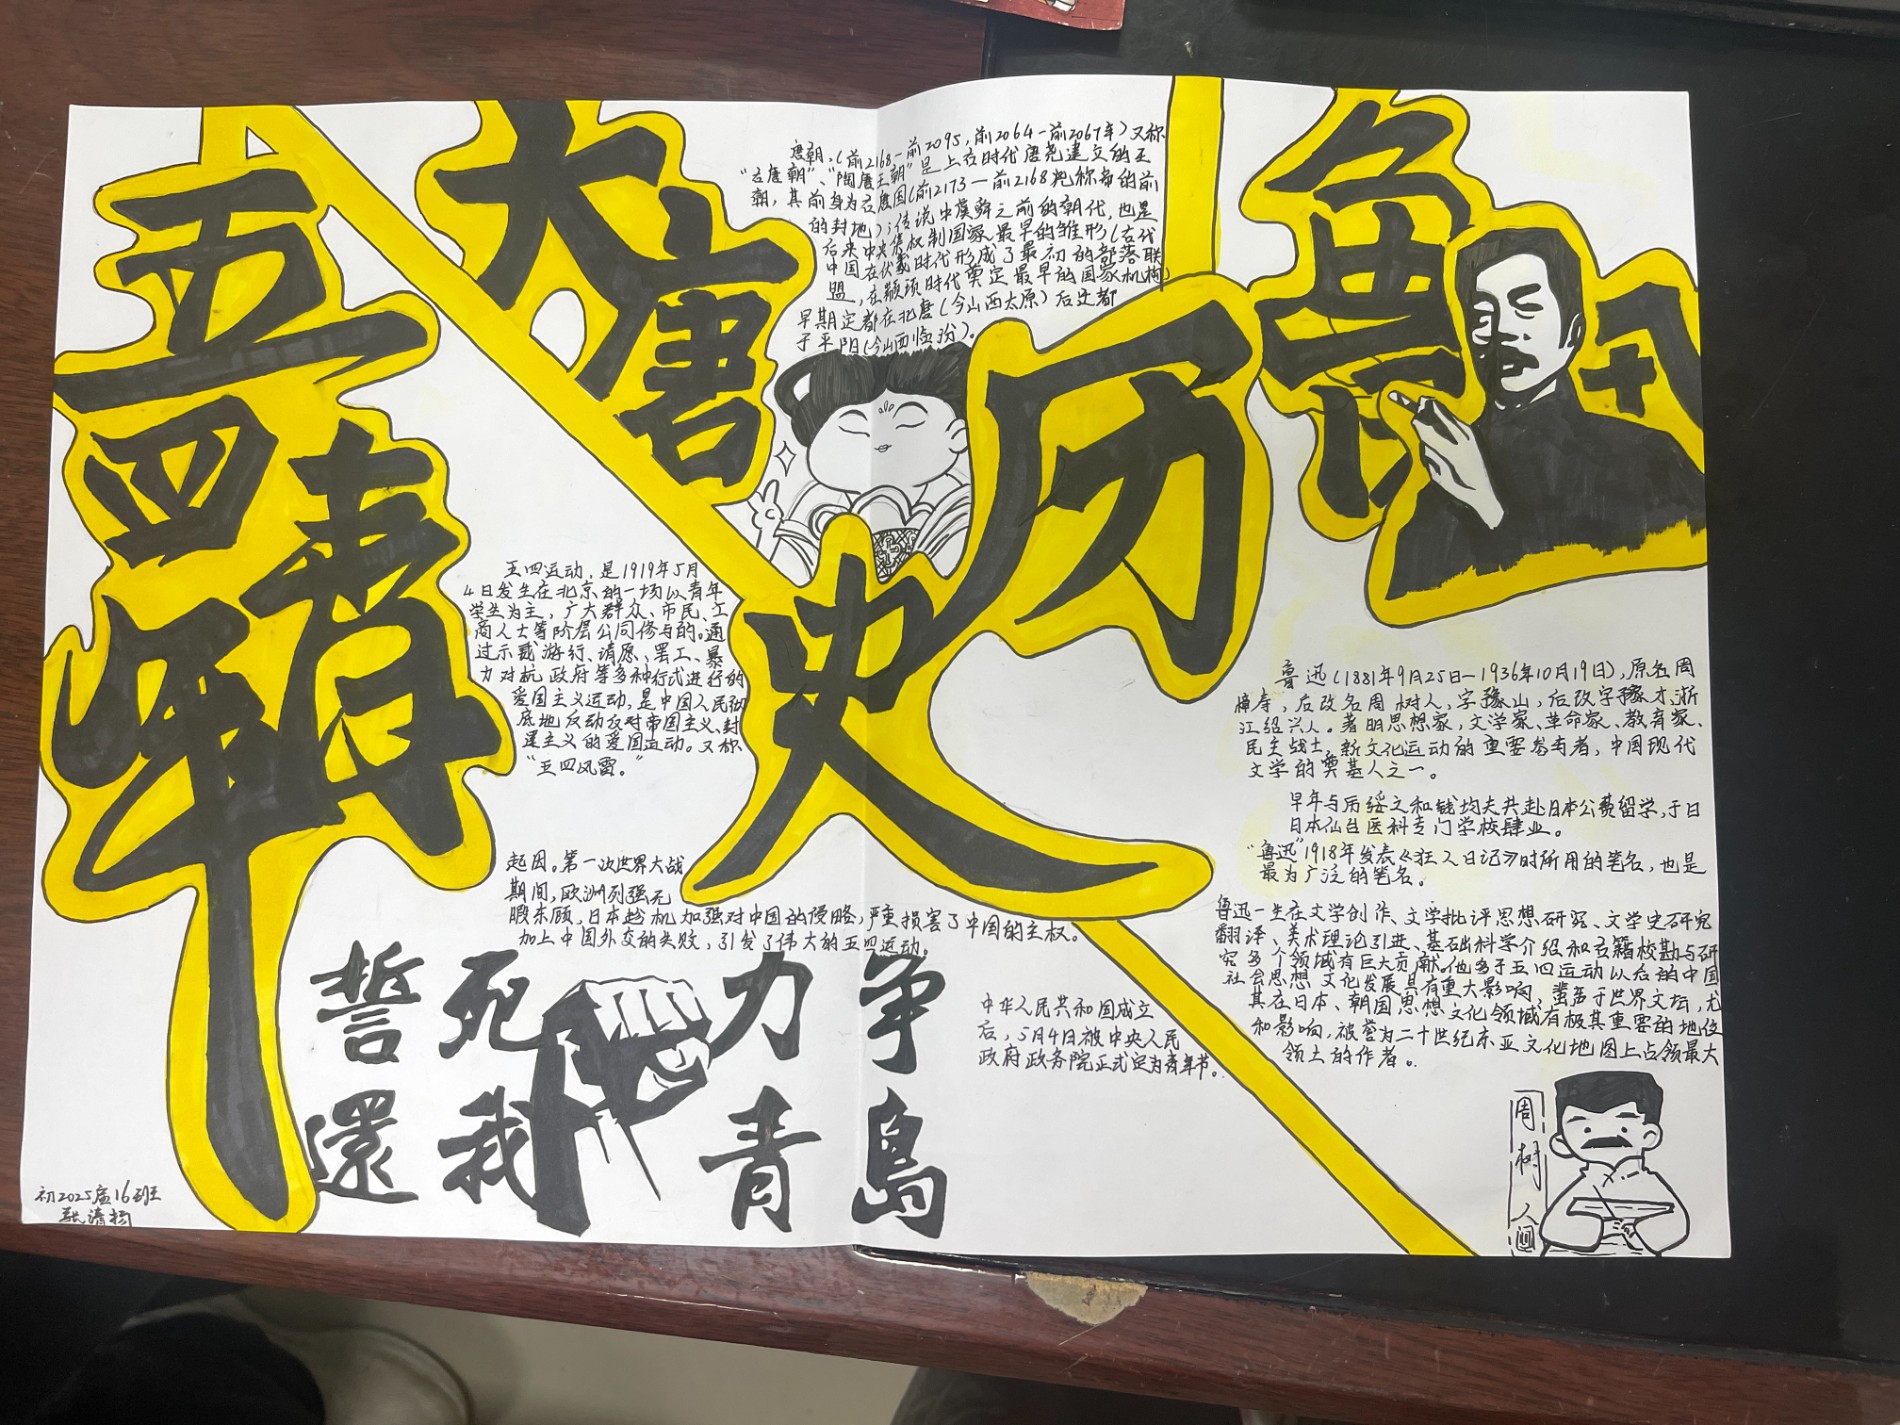 五四青年
大唐
唐朝.(前2168—前2095,前2064—前2067年)又称
“古唐朝”、“陶唐王朝”是上古时代唐尧建立的王
朝,其前身为古唐国(前2173—前2168尧称帝的前
的封地);传说中虞舜之前的朝代,也是
后来中央集权制国家最早的雏形(古代
中国在伏羲时代形成了最初的部落联
盟,在颛顼时代奠定最早的国家机构)
早期定都在北唐(今山西太原)后迁都
于平阳(今山西临汾)。
历史
鲁迅
五四运动,是1919年5月
4日发生在北京的一场以青年
学生为主,广大群众、市民、工
商人士等阶层公同修与的。通
过示威游行、请愿、罢工、暴
力对抗政府等多种行式进行的
爱国主义运动,是中国人民彻
底地反动反对帝国主义、封
建主义的爱国运动。又称
“五四风雷。”
起因。第一次世界大战
期间,欧洲列强无
暇东顾,日本趁机加强对中国的侵略,严重损害了中国的主权。
加上中国外交的失败,引发了伟大的五四运动。
誓死力争
還我青島
中华人民共和国成立
后,5月4日被中央人民
政府政务院正式定为青年节。
鲁迅(1881年9月25日—1936年10月19日),原名周
樟寿,后改名周树人,字豫山,后改字豫才,浙
江绍兴人。著明思想家,文学家、革命家、教育家、
民主战士,新文化运动的重要参与者,中国现代
文学的奠基人之一。
早年与厉绥之和钱均夫共赴日本公费留学,于日
日本仙台医科专门学校肄业。
“鲁迅”1918年发表《狂人日记》时所用的笔名,也是
最为广泛的笔名。
鲁迅一生在文学创作、文学批评思想研究、文学史研究
翻译、美术理论引进、基础科学介绍和古籍校勘与研
究多个领域有巨大贡献。他多于五四运动以后的中国
社会思想文化发展具有重大影响,蜚声于世界文坛,尤
其在日本、朝国思想文化领域有极其重要的地位
和影响,被誉为二十世纪东亚文化地图上占领最大
领土的作者。
周树人
初2025届16班